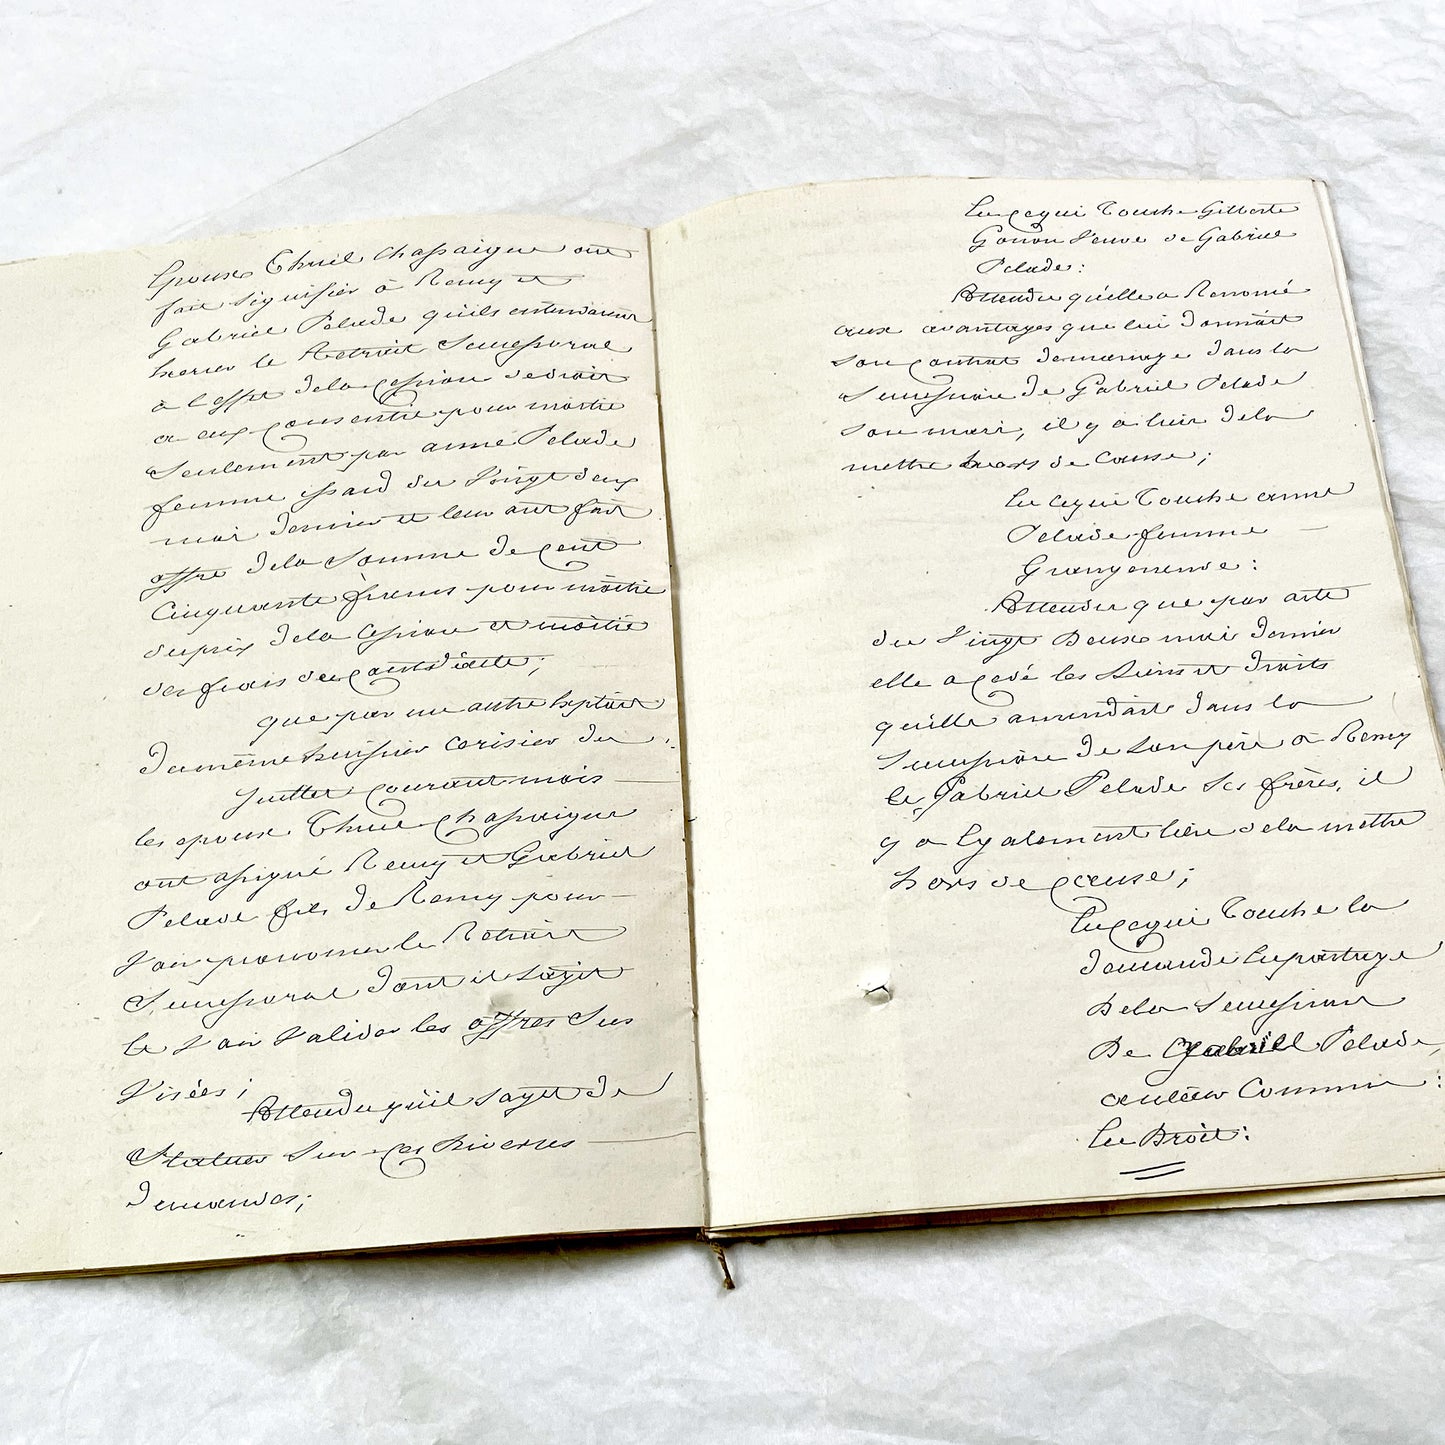 Epoux Thuel Chassaigne ont
fait signifier à Remy et
Gabriel Pelade qu'ils entendaient
exercer le Retrait Successoral
à l'effet de la cession de droit
a eux consentie pour moitié
Seulement par anne Pelade
femme issard du Vingt deux
mai dernier et leur ont fait
offre de la Somme de cent
Cinquante francs pour moitié
du prix de la Cession et moitié
des frais du contrat;
que par un autre Exploit
Du même huissier Cerisier du
Juillet courant mois
les epoux Thuel Chassaigne
ont assigné Remy et Gabriel
Pelade fils de Remy pour
Voir prononcer le Retrait
Successoral dont il s'agit
et Voir Valider les offres Sus
Visées;
Attendu qu'il s'agit de
Statuer Sur ces Diverses
demandes;
En ce qui Touche Gilberte
Gonon Veuve de Gabriel
Pelade:
Attendu qu'elle a Renoncé
aux avantages que lui Donnait
Son contrat de mariage dans la
Succession de Gabriel Pelade
Son mari, il y a lieu de la
mettre hors de Cause;
En ce qui Touche anne
Pelade femme
Attendu que par acte
du Vingt Deux mai Dernier
elle a cédé les Biens et droits
qu'elle amendait dans la
Succession de Son père à Remy
et Gabriel Pelade Ses frères, il
y a Egalement lieu de la mettre
hors de cause;
En ce qui Touche la
demande En partage
De la Succession
De Gabriel Pelade,
auteur Commun:
En Droit: